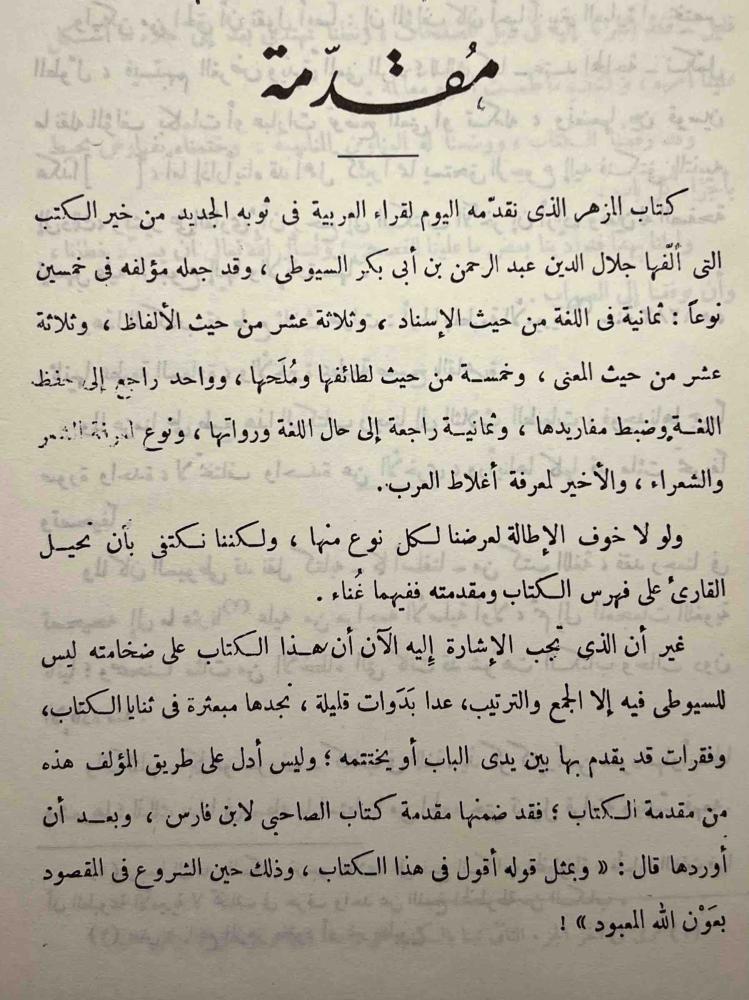 مُقدّمة
كتاب المزهر الذى نقدّمه اليوم لقراء العربية فى ثوبه الجديد من خير الكتب
التى ألّفها جلال الدين عبد الرحمن بن أبى بكر السيوطى ، وقد جعله مؤلفه فى خمسين
نوعاً : ثمانية فى اللغة من حيث الإسناد ، وثلاثة عشر من حيث الألفاظ ، وثلاثة
عشر من حيث المعنى ، وخمسة من حيث لطائفها ومُلَحها ، وواحد راجع إلى حفظ
اللغة وضبط مفاريدها ، وثمانية راجعة إلى حال اللغة ورواتها ، ونوع لمعرفة الشعر
والشعراء ، والأخير لمعرفة أغلاط العرب .
ولو لا خوف الإطالة لعرضنا لكل نوع منها ، ولكننا نكتفى بأن نحيل
القارئ على فهرس الكتاب ومقدمته ففيهما غُناء .
غير أن الذى تجب الإشارة إليه الآن أن هذا الكتاب على ضخامته ليس
للسيوطى فيه إلا الجمع والترتيب، عدا بَدَوات قليلة ، نجدها مبعثرة فى ثنايا الكتاب،
وفقرات قد يقدم بها بين يدى الباب أو يختتمه ؛ وليس أدل على طريق المؤلف هذه
من مقدمة الكتاب ؛ فقد ضمنها مقدمة كتاب الصاحبى لابن فارس ، وبعد أن
أوردها قال : « وبمثل قوله أقول فى هذا الكتاب ، وذلك حين الشروع فى المقصود
بعَوْن الله المعبود » !